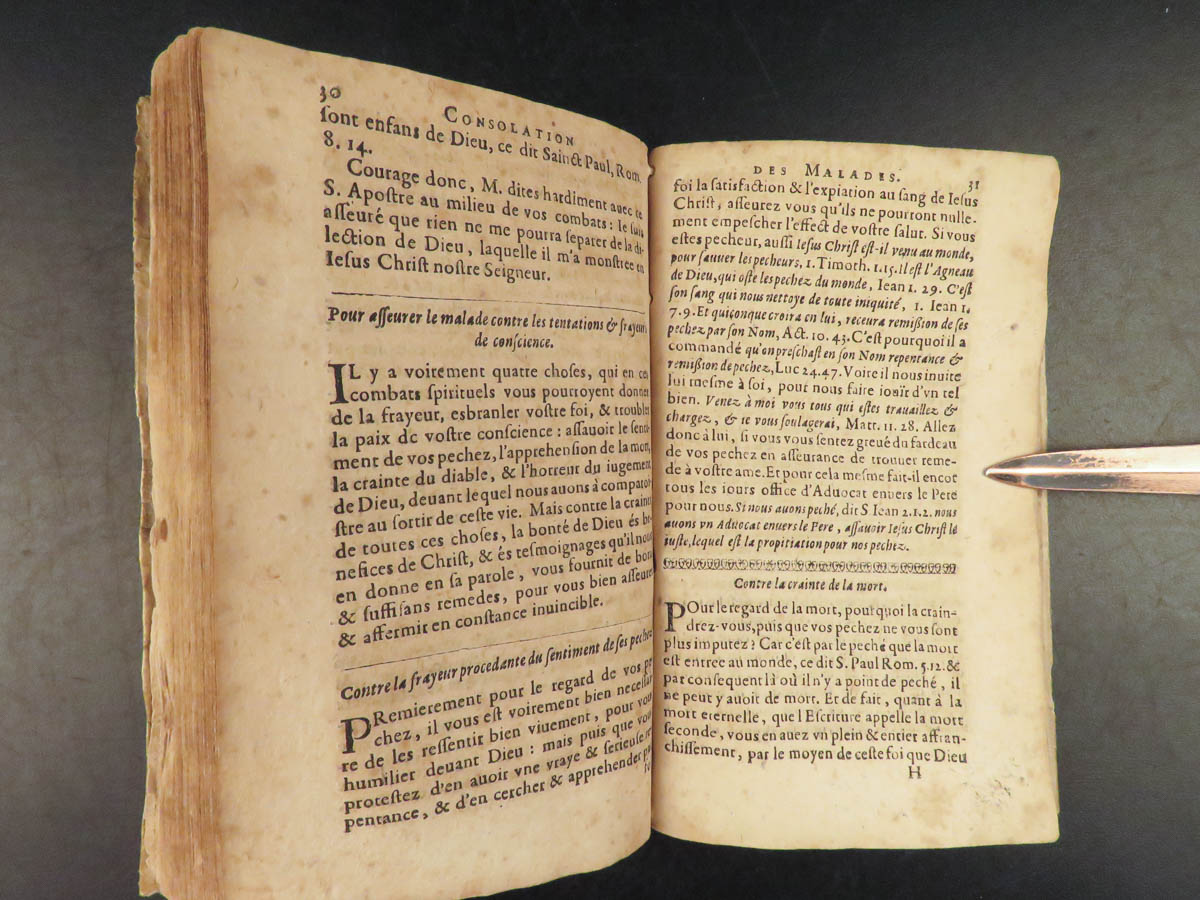 30
CONSOLATION
ſont enfans de Dieu, ce dit Sainct Paul, Rom.
8. 14.
Courage donc, M. dites hardiment auec ce
S. Apoſtre au milieu de vos combats: Ie ſuis
aſſeuré que rien ne me pourra ſeparer de la di-
lection de Dieu, laquelle il m'a monſtree en
Ieſus Chriſt noſtre Seigneur.
Pour aſſeurer le malade contre les tentations & frayeurs
de conſcience.
IL y a voirement quatre choſes, qui en ces
combats ſpirituels vous pourroyent donner
de la frayeur, esbranler voſtre foi, & troubler
la paix de voſtre conſcience: aſſauoir le ſenti-
ment de vos pechez, l'apprehenſion de la mort,
la crainte du diable, & l'horreur du iugement
de Dieu, deuant lequel nous auons à comparoi-
ſtre au ſortir de ceſte vie. Mais contre la crainte
de toutes ces choſes, la bonté de Dieu és be-
nefices de Chriſt, & és teſmoignages qu'il nous
en donne en ſa parole, vous fournit de bons
& ſuffiſans remedes, pour vous bien aſſeurer
& affermir en conſtance inuincible.
Contre la frayeur procedante du ſentiment de ſes pechez
PRemierement pour le regard de vos pe-
chez, il vous eſt voirement bien neceſſai-
re de les reſſentir bien viuement, pour vous
humilier deuant Dieu: mais puis que vous
proteſtez d'en auoir vne vraye & ſerieuſe re-
pentance, & d'en cercher & apprehender par
DES MALADES.
31
foi la ſatisfaction & l'expiation au ſang de Ieſus
Chriſt, aſſeurez vous qu'ils ne pourront nulle-
ment empeſcher l'effect de voſtre ſalut. Si vous
eſtes pecheur, auſſi Ieſus Chriſt eſt-il venu au monde,
pour ſauuer les pecheurs, 1. Timoth. 1.15. il eſt l'Agneau
de Dieu, qui oſte les pechez du monde, Iean 1. 29. C'eſt
ſon ſang qui nous nettoye de toute iniquité, 1. Iean 1.
7.9. Et quiconque croira en lui, receura remiſſion de ſes
pechez par ſon Nom, Act. 10. 43. C'eſt pourquoi il a
commandé qu'on preſchaſt en ſon Nom repentance &
remiſſion de pechez, Luc 24.47. Voire il nous inuite
lui meſme à ſoi, pour nous faire iouir d'vn tel
bien. Venez à moi vous tous qui eſtes trauaillez &
chargez, & ie vous ſoulagerai, Matt. 11. 28. Allez
donc à lui, ſi vous vous ſentez greué du fardeau
de vos pechez en aſſeurance de trouuer reme-
de à voſtre ame. Et pour cela meſme fait-il encor
tous les iours office d'Aduocat enuers le Pere
pour nous. Si nous auons peché, dit S Iean 2.1.2. nous
auons vn Aduocat enuers le Pere, aſſauoir Ieſus Chriſt le
iuſte, lequel eſt la propitiation pour nos pechez.
Contre la crainte de la mort.
POur le regard de la mort, pourquoi la crain-
drez-vous, puis que vos pechez ne vous ſont
plus imputez? Car c'eſt par le peché que la mort
eſt entree au monde, ce dit S. Paul Rom. 5.12. &
par conſequent là où il n'y a point de peché, il
ne peut y auoir de mort. Et de fait, quant à la
mort eternelle, que l'Eſcriture appelle la mort
ſeconde, vous en auez vn plein & entier affran-
chiſſement, par le moyen de ceſte foi que Dieu
H